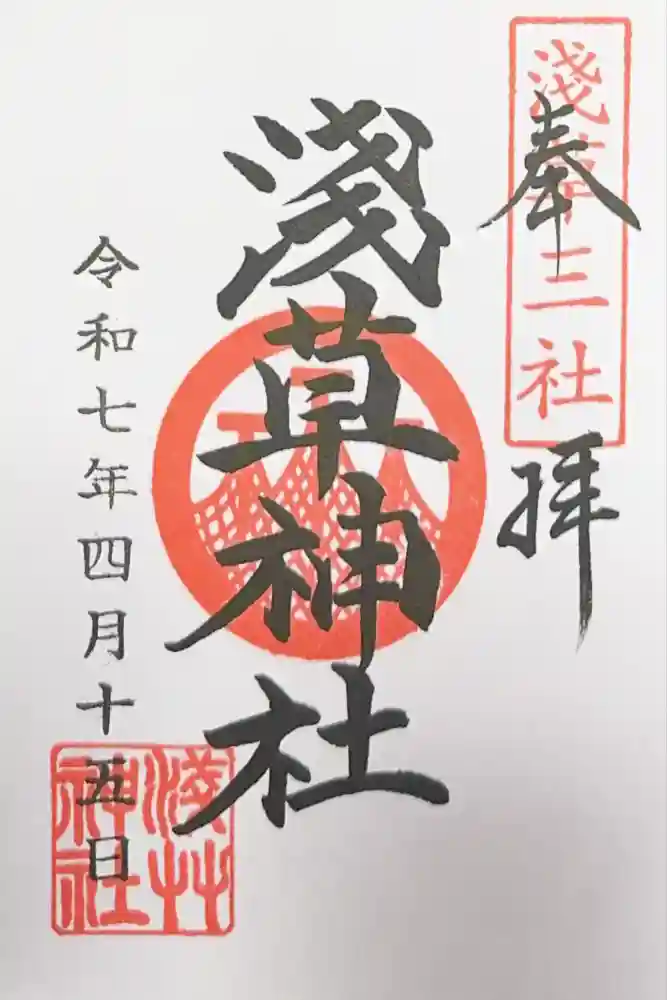 奉拝
淺草三社
淺草神社
令和七年四月十五日
淺艸
神社